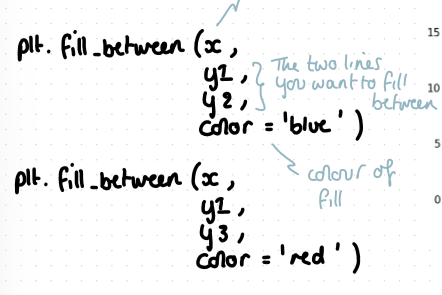 plt. fill_between (x,
y1,
y2,
color = 'blue')
The two lines
you want to fill
between
colour of
fill
plt. fill_between (x,
y1,
y3,
color = 'red')
15
10
5
0